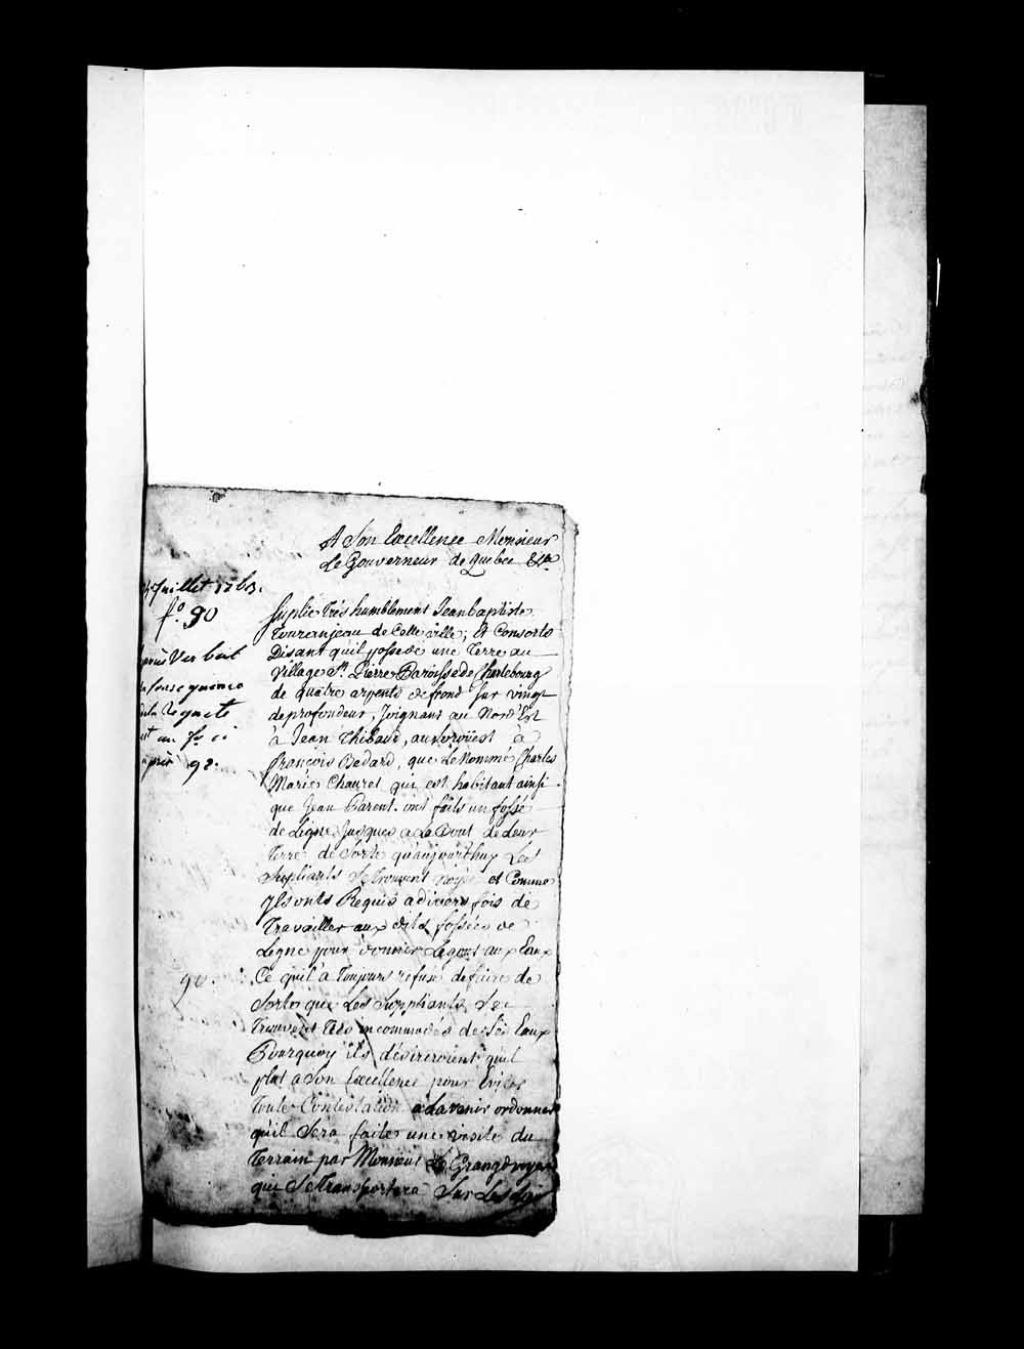 A Son Excellence Monsieur
Le Gouverneur de Quebec &ca
Juillet 1763.
fo. 90
Verbal
la Requete
98.
Suplie Trés humblement Jean baptiste
Touranjeau de Cette ville, Et Consorts
Disant qu'il possede une Terre au
Village St. Pierre Paroisse de Charlebourg
de quatre arpents de frond Sur vingt
de profondeur, Joignant au Nord Est
à Jean Thibaud, au sorouest à
françois Bedard, que Le Nommé Charles
Marie Chauret qui est habitant ainsi
que Jean Parent. ont faits un fossé
de Ligne Jusques a Le Bout de Leur
Terre de Sorte qu'aujourthuy Les
Supliants Se trouvent noyé et Comme
Ils onts Requis a divers fois de
Travailler aux dits fossées de
Ligne pour donner Legout aux Eaux
Ce quil à Toujours refusé de faire de
Sorte que Les Suppliants Se
Trouvent incommodés de Ses Eaux
90.
Pourquoy ils désireroient quil
plut a Son Excellence pour Eviter
Toute Contestation a Lavenir ordonner
qu'il Sera faite une visite du
Terrain par Monsieur Le Grandvoyer
qui Se Transportera Sur Les